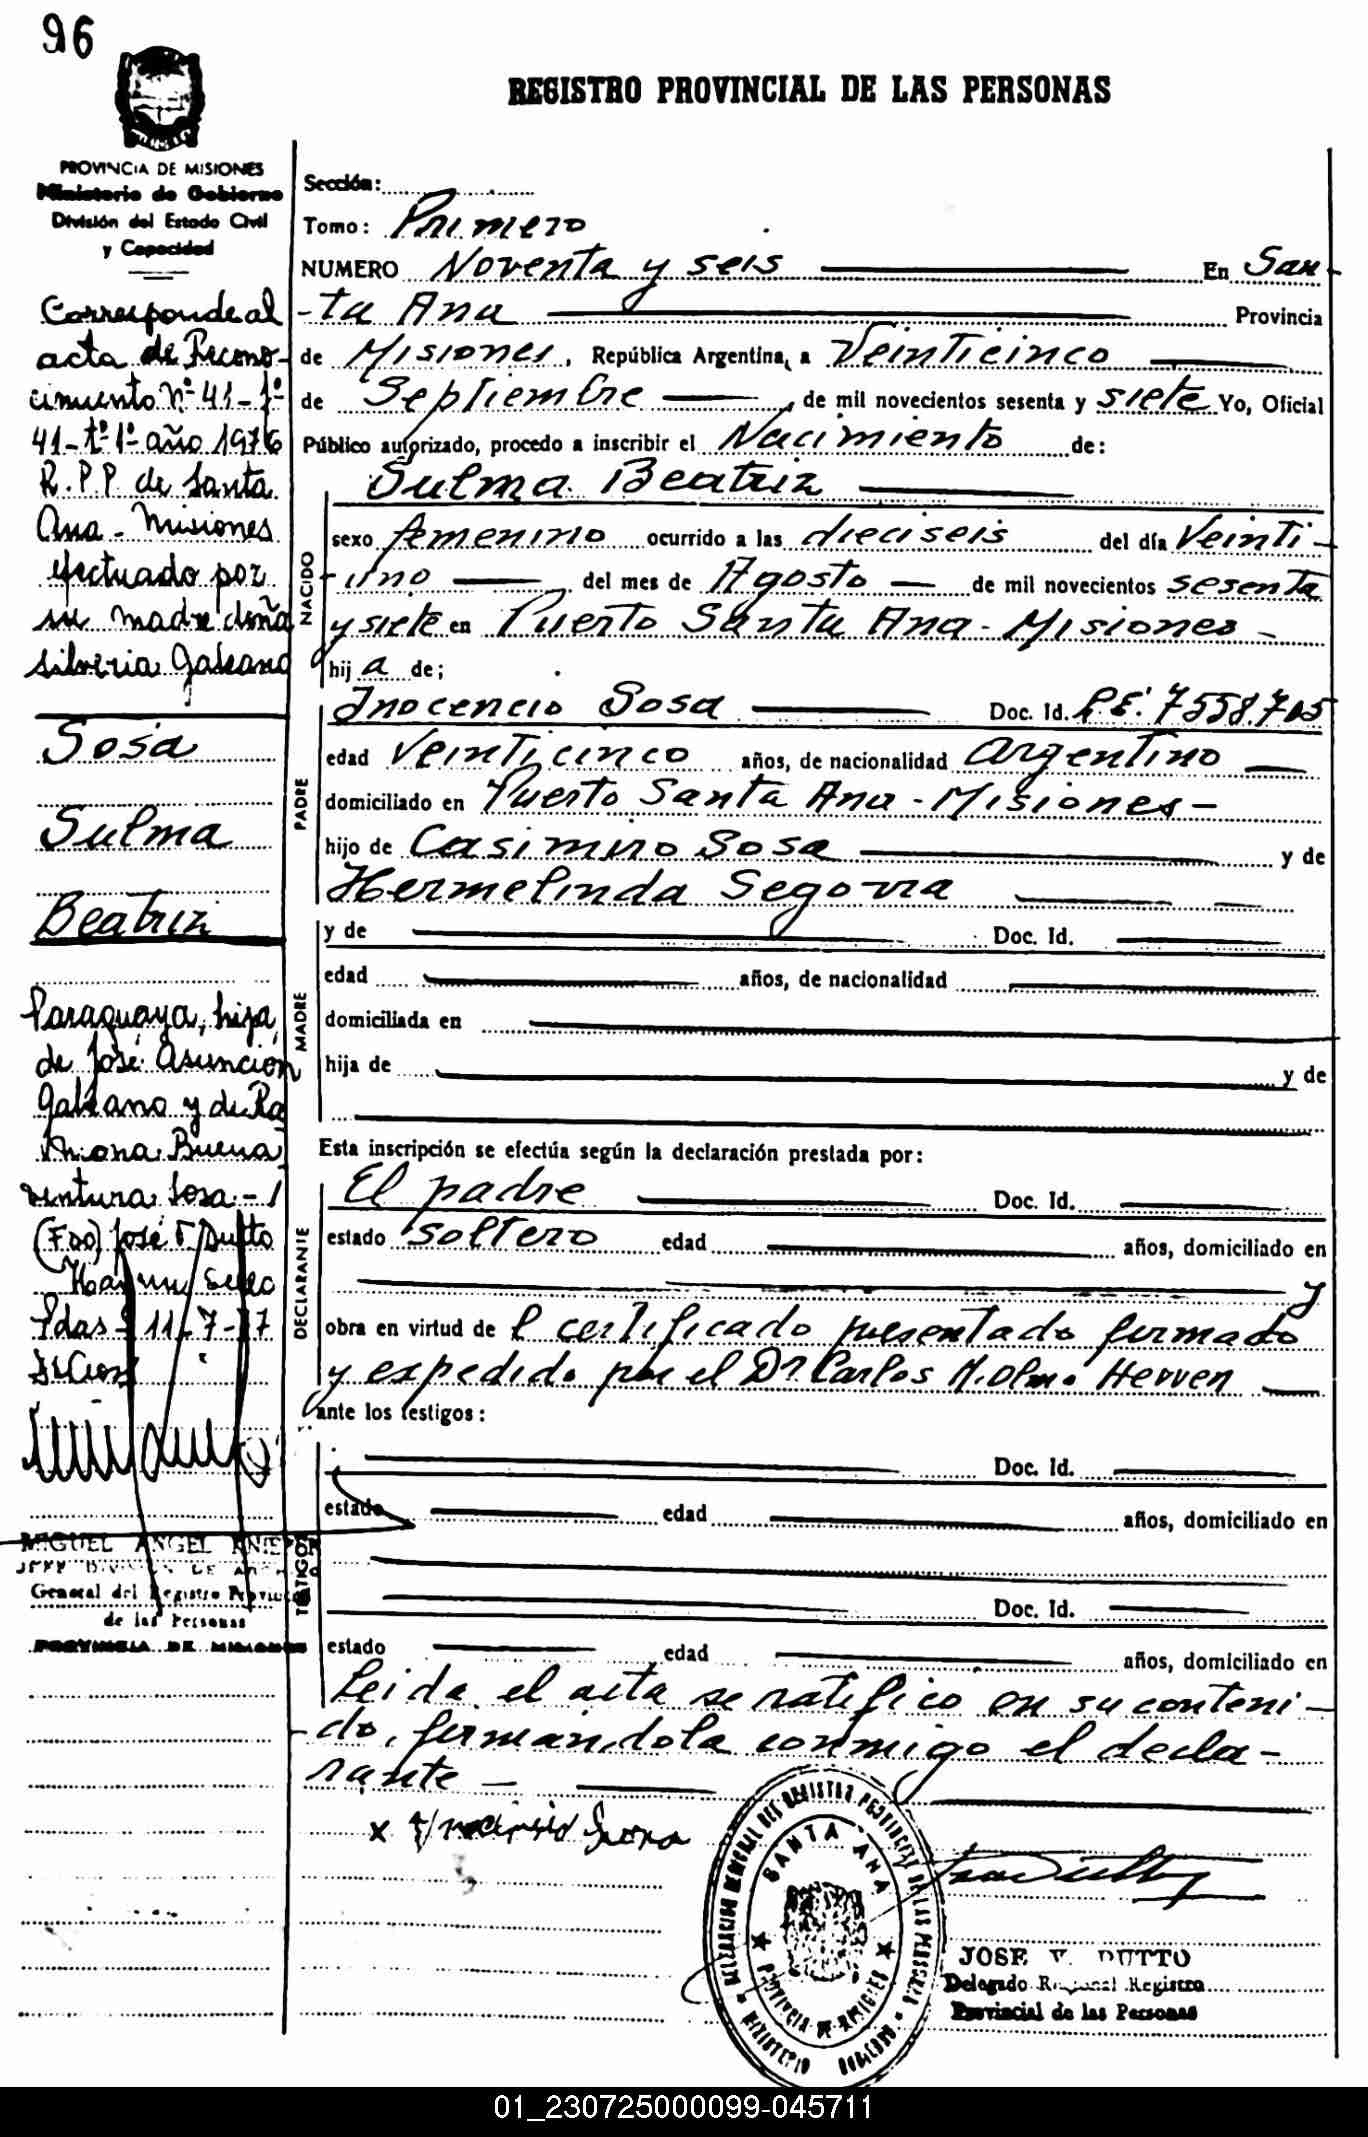 96
REGISTRO PROVINCIAL DE LAS PERSONAS
PROVINCIA DE MISIONES
Ministerio de Gobierno
División del Estado Civil
y Capacidad
Corresponde al
acta de Recono-
cimiento Nº 41-fº
41-tº1º año 1976
R.P.P. de Santa
Ana - Misiones
efectuado por
su madre doña
Silveria Galeano
Sosa
Sulma
Beatriz
Paraguaya, hija
de José Asunción
Galeano y de Ra
mona Buena
ventura Sosa -
(Fdo) José V. Dutto
Hay un Sello
Pdas 11-7-77
MIGUEL ANGEL
General del Registro Provincial
de las Personas
PROVINCIA DE MISIONES
Sección:
Tomo: Primero
NUMERO Noventa y seis En San
-ta Ana Provincia
de Misiones, República Argentina, a Veinticinco
de Septiembre, de mil novecientos sesenta y siete Yo, Oficial
Público autorizado, procedo a inscribir el Nacimiento de:
NACIDO
Sulma Beatriz
sexo femenino ocurrido a las dieciseis del día Veinti-
-uno del mes de Agosto de mil novecientos sesenta
y siete en Puerto Santa Ana - Misiones -
hij a de;
PADRE
Inocencio Sosa Doc. Id. L.E. 7558.705
edad Veinticinco años, de nacionalidad Argentino
domiciliado en Puerto Santa Ana - Misiones -
hijo de Casimiro Sosa y de
Hermelinda Segovia
MADRE
y de Doc. Id.
edad años, de nacionalidad
domiciliada en
hija de y de
Esta inscripción se efectúa según la declaración prestada por:
DECLARANTE
El padre Doc. Id.
estado soltero edad años, domiciliado en
y
obra en virtud de l certificado presentado firmado
y expedido por el Dr Carlos M. Olmo Herren
ante los testigos:
TESTIGOS
Doc. Id.
estado edad años, domiciliado en
Doc. Id.
estado edad años, domiciliado en
Leida el acta se ratifico en su conteni-
-do, firmandola conmigo el decla-
rante -
x Inocencio Sosa
MINISTERIO DE GOBIERNO
SANTA ANA
PROVINCIA DE MISIONES
JOSE V. DUTTO
Delegado Regional Registro
Provincial de las Personas
01_230725000099-045711